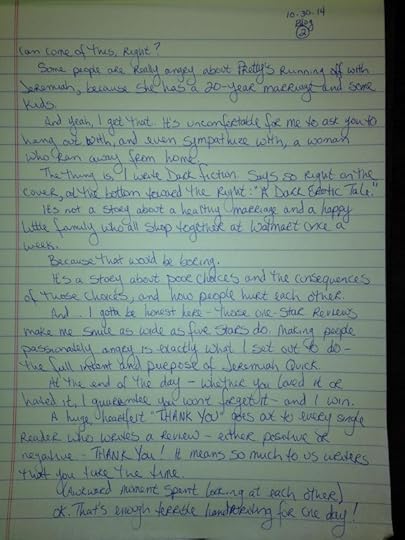 10-30-14
Blog
2
Can come of this, right?
Some people are really angry about Pretty's running off with
Jeremiah, because she has a 20-year marriage and some
kids.
And yeah, I get that. It's uncomfortable for me to ask you to
hang out with, and even sympathize with, a woman
who ran away from home.
The thing is I write Dark fiction. Says so right on the
cover, at the bottom toward the right: "A Dark Erotic Tale."
It's not a story about a healthy marriage and a happy
little family who all shop together at Walmart once a
week.
Because that would be boring.
It's a story about poor choices and the consequences
of those choices, and how people hurt each other.
And.. I gotta be honest here - those one-star reviews
make me smile as wide as five stars do. Making people
passionately angry is exactly what I set out to do -
the full intent and purpose of Jeremiah Quick.
At the end of the day - whether you loved it or
hated it, I guarantee you won't forget it - and I win.
A huge heartfelt "THANK YOU" goes out to every single
reader who writes a review - either positive or
negative - THANK YOU! It means so much to us writers
that you take the time.
(Awkward moment spent looking at each other)
OK. That's enough terrible handwriting for one day!